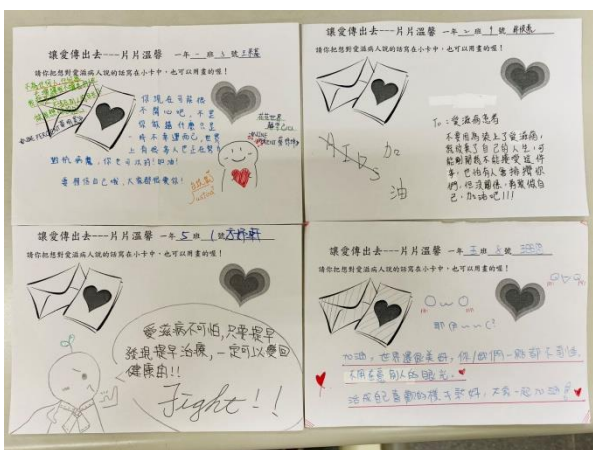 讓愛傳出去---片片溫馨 一年 一 班 3 號
請你把想對愛滋病人說的話寫在小卡中,也可以用畫的喔!
你現在可能很
不開心吧,不是
你做錯什麼只是
成不幸運而已,世界
上有很多人也正在努力
戰抗病魔,你也可以的!加油!
要相信自己哦,大家都很愛你!
讓愛傳出去---片片溫馨 一年 2 班 1 號
請你把想對愛滋病人說的話寫在小卡中,也可以用畫的喔!
To:愛滋病患者
不要因為染上了愛滋病,
就放棄了自己的人生,可
能剛開始不能接受這件
事,也怕有人會排擠你
們,但沒關係,勇敢做自
己,加油吧!!!
AIDs 加
油
讓愛傳出去---片片溫馨 一年 5 班 1 號
請你把想對愛滋病人說的話寫在小卡中,也可以用畫的喔!
愛滋病不可怕,只要提早
發現提早治療,一定可以變回
健康的!!
Fight!!
讓愛傳出去---片片溫馨 一年 三 班 號
請你把想對愛滋病人說的話寫在小卡中,也可以用畫的喔!
OwO
加油,世界還很美好,你/妳們一點都不可怕。
不用在意別人的眼光。
活成自己喜歡的樣子就好,不要一起加油